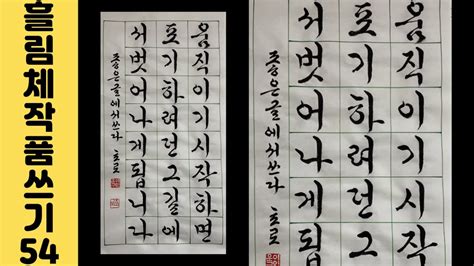 흘림체작품쓰기
54
움직이기시작하면
포기하려던그길에
서벗어나게됩니다
좋은글에서쓰다
움직이기시작
포기하려던그
서벗어나게됩
좋은글에서쓰다